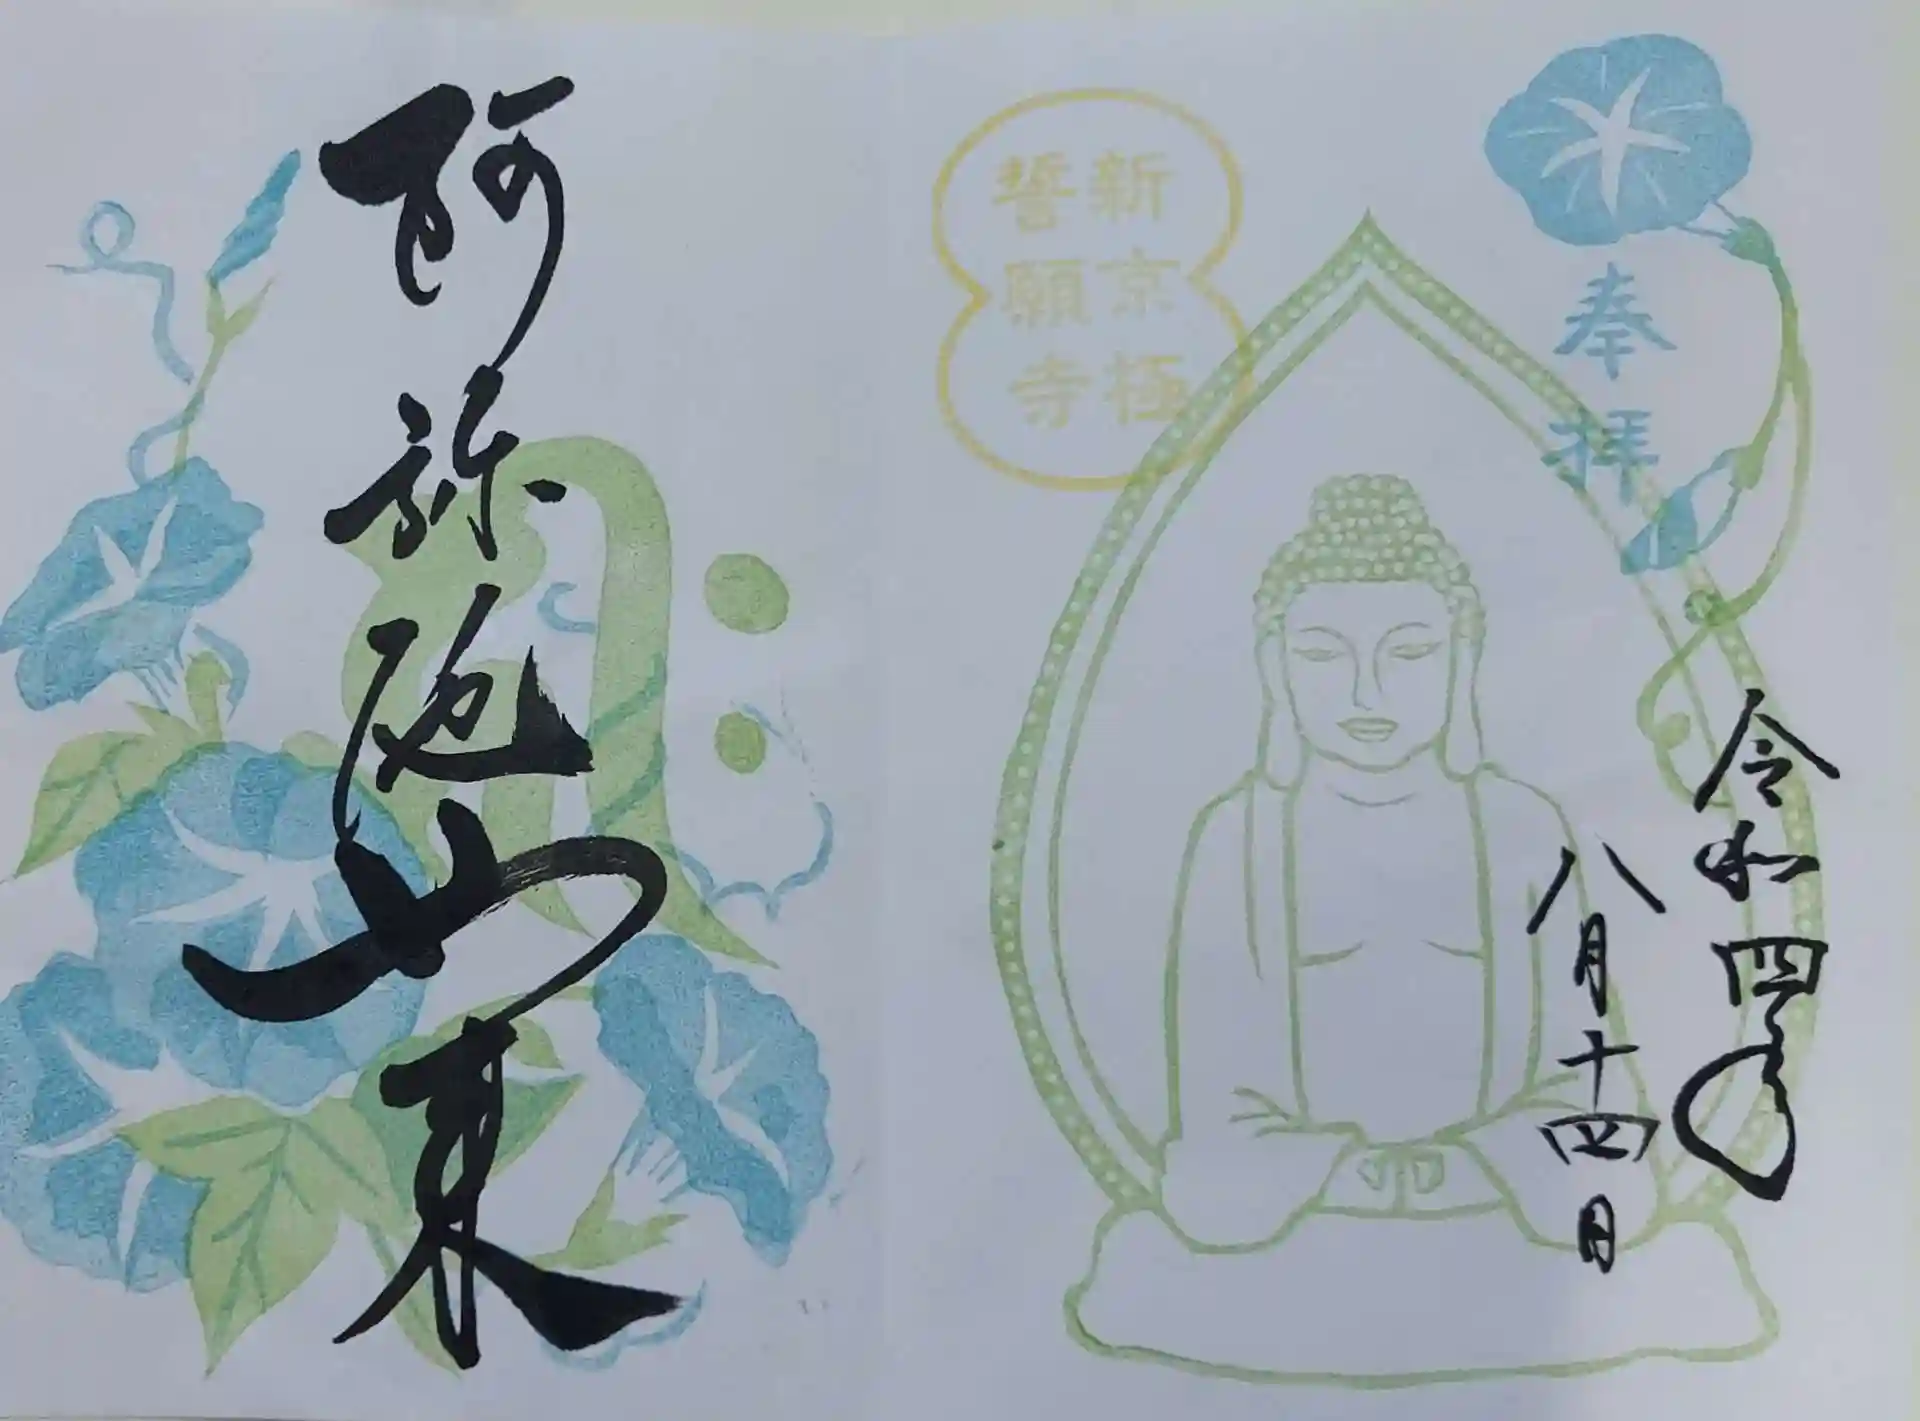 奉拝
令和四年
八月十四日
新京極
誓願寺
阿弥陀如来